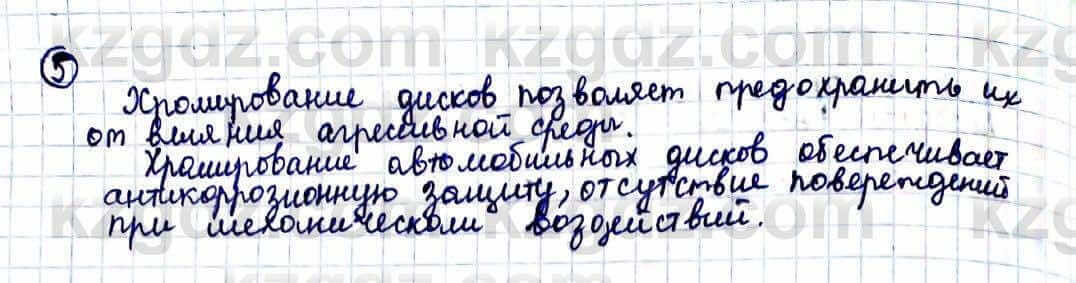 kzgdz.com kzgdz.com kzg
5
Хромирование дисков позволяет предохранить их
от влияния агрессивной среды.
Хромирование автомобильных дисков обеспечивает
антикоррозионную защиту, отсутствие повереждений
при механическом воздействий.